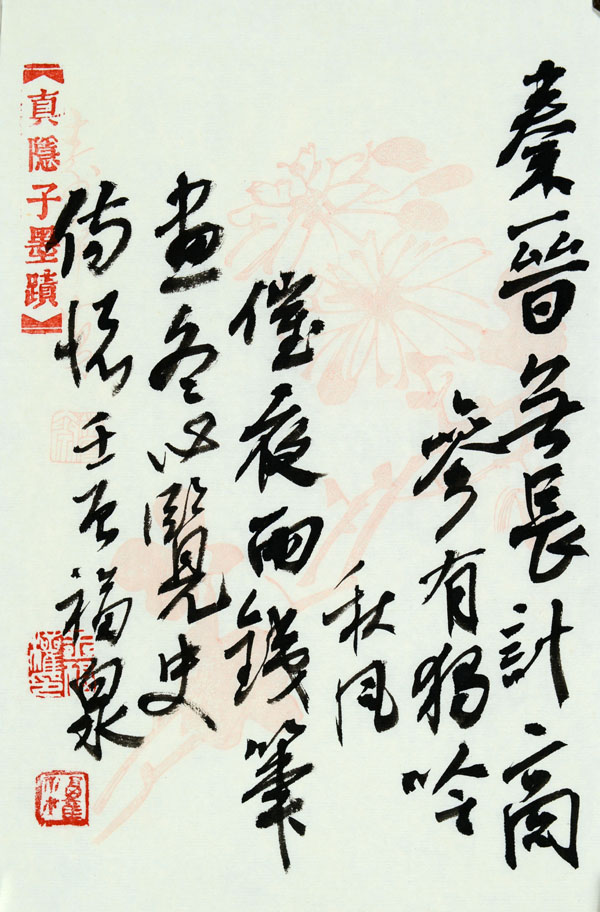 秦晉無長計商
參有獨吟
秋風
催夜雨錢筆
畫冬心覽史
傷懷 壬 福泉
【真隱子墨蹟】